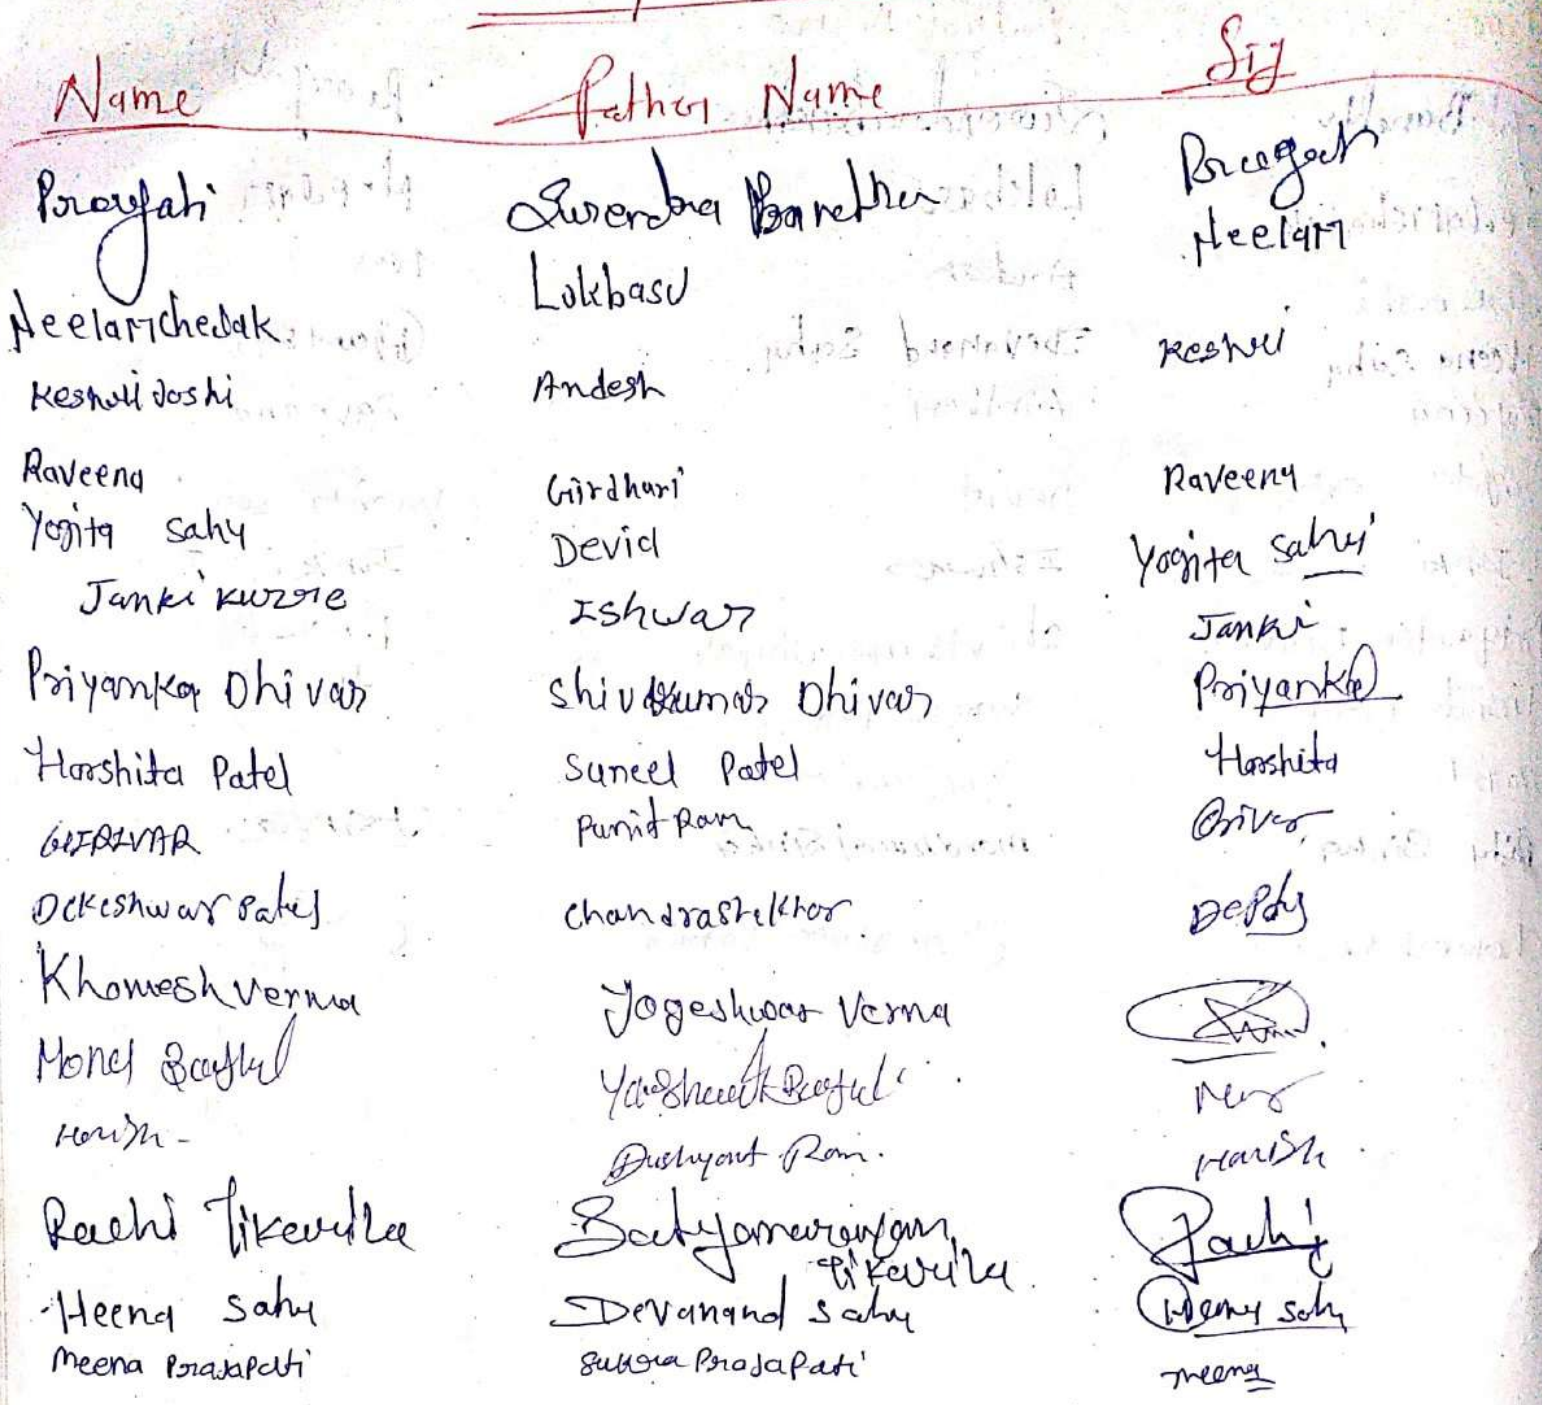 Name Father Name Sig
Pragati Surendra Bandhe Pragati
Neelam Chelak Lokbasu Neelam
Keshwi Joshi Andesh Keshwi
Raveena Girdhari Raveena
Yogita Sahu Devid Yogita Sahu
Janki Kurre Ishwar Janki
Priyanka Dhivar Shivkumar Dhivar Priyanka
Harshita Patel Suneel Patel Harshita
GIRIVAR Punit Ram Griver
Dckeshwar Patel Chandrashekhar
Khomesh Verma Yogeshwar Verma
Harish Dushyant Ram. Harish
Rachi Tikariha Satyanarayan Tikariha Rachi
Heena Sahu Devanand Sahu Heena Sahu
Meena Prajapati Sukra Prajapati Meena